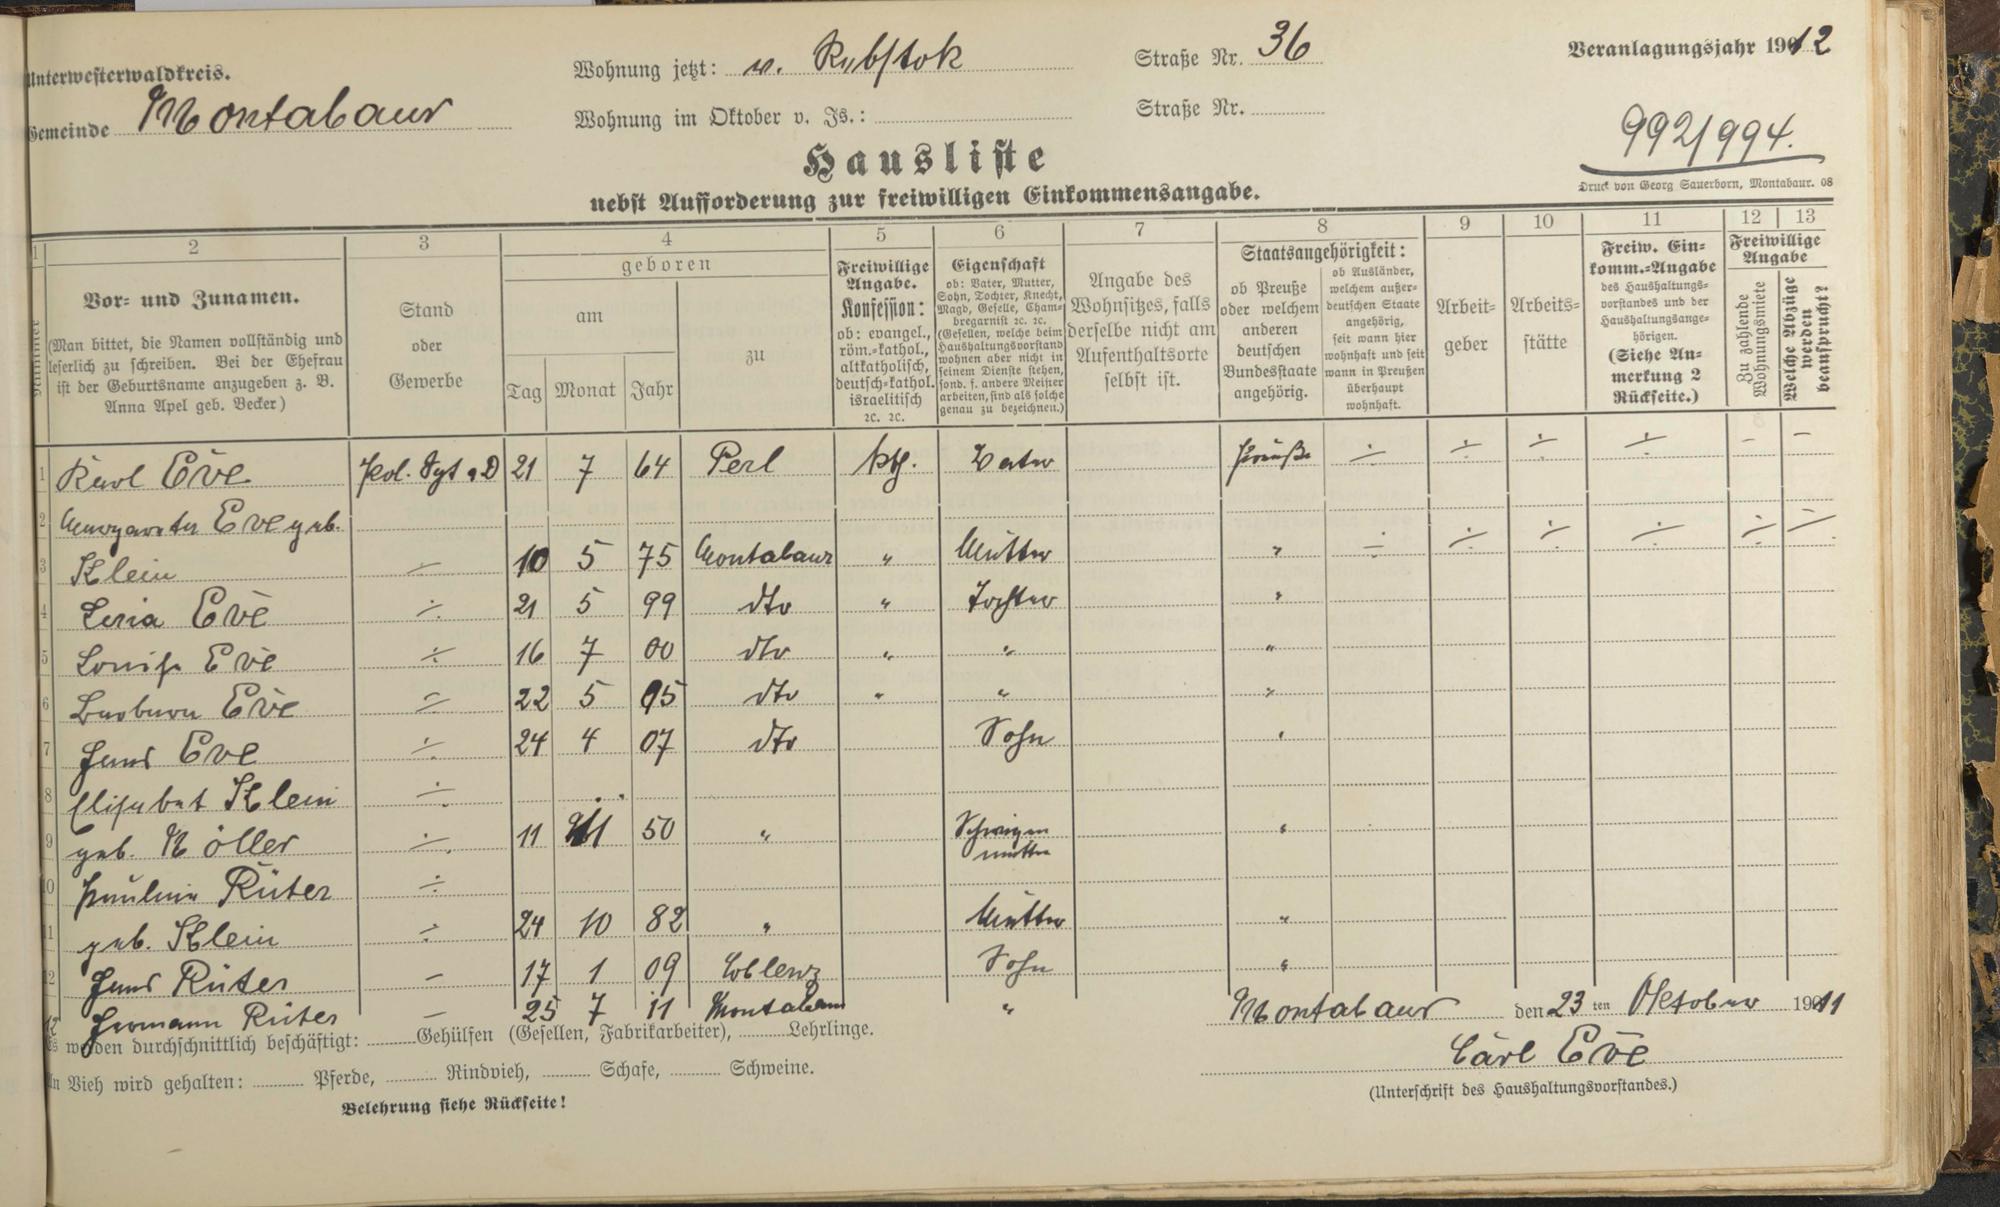 Unterwesterwaldkreis.
Gemeinde Montabaur
Wohnung jetzt: v. Rebstok Straße Nr. 36
Wohnung im Oktober v. Js.: Straße Nr.
Veranlagungsjahr 1912
992/994.
Hausliste
nebst Aufforderung zur freiwilligen Einkommensangabe.
Druck von Georg Sauerborn, Montabaur. 08
1 2 3 4 5 6 7 8 9 10 11 12 13
Nummer
Vor- und Zunamen.
(Man bittet, die Namen vollständig und
leserlich zu schreiben. Bei der Ehefrau
ist der Geburtsname anzugeben z. B.
Anna Apel geb. Becker)
Stand
oder
Gewerbe
geboren
am
Tag Monat Jahr
zu
Freiwillige
Angabe.
Konfession:
ob: evangel.,
röm.-kathol.,
altkatholisch,
deutsch-kathol.
israelitisch
ꝛc. ꝛc.
Eigenschaft
ob: Vater, Mutter,
Sohn, Tochter, Knecht,
Magd, Geselle, Cham-
bregarnist ꝛc. ꝛc.
(Gesellen, welche beim
Haushaltungsvorstand
wohnen aber nicht in
seinem Dienste stehen,
sond. f. andere Meister
arbeiten, sind als solche
genau zu bezeichnen.)
Angabe des
Wohnsitzes, falls
derselbe nicht am
Aufenthaltsorte
selbst ist.
Staatsangehörigkeit:
ob Preuße
oder welchem
anderen
deutschen
Bundesstaate
angehörig.
ob Ausländer,
welchem außer-
deutschen Staate
angehörig,
seit wann hier
wohnhaft und seit
wann in Preußen
überhaupt
wohnhaft.
Arbeit-
geber
Arbeits-
stätte
Freiw. Ein-
komm.-Angabe
des Haushaltungs-
vorstandes und der
Haushaltungsange-
hörigen.
(Siehe An-
merkung 2
Rückseite.)
Freiwillige
Angabe
Zu zahlende
Wohnungsmiete
Welche Abzüge
werden
beansprucht?
1 Karl Eve Pol. Sgt a D 21 7 64 Perl kth. Vater Preuße ÷ ÷ ÷ ÷ – –
2 Margareta Eve geb.
3 Klein ÷ 10 5 75 Montabaur " Mutter " ÷ ÷ ÷ ÷ ÷ ÷
4 Eve ÷ 21 5 99 dto " Tochter "
5 Louise Eve ÷ 16 7 00 dto " " "
6 Barbara Eve ÷ 22 5 05 dto " " "
7 Hans Eve ÷ 24 4 07 dto Sohn "
8 Elisabet Klein ÷
9 geb. Möller ÷ 11 11 50 " Schwiegermutter "
10 Pauline Rüter ÷
11 geb. Klein ÷ 24 10 82 " Mutter "
12 Hans Rüter – 17 1 09 Coblenz Sohn "
Hermann Rüter – 25 7 11 Montabaur "
Montabaur den 23 ten Oktober 1911
Es werden durchschnittlich beschäftigt: Gehülfen (Gesellen, Fabrikarbeiter), Lehrlinge.
Carl Eve
An Vieh wird gehalten: Pferde, Rindvieh, Schafe, Schweine.
(Unterschrift des Haushaltungsvorstandes.)
Belehrung siehe Rückseite!